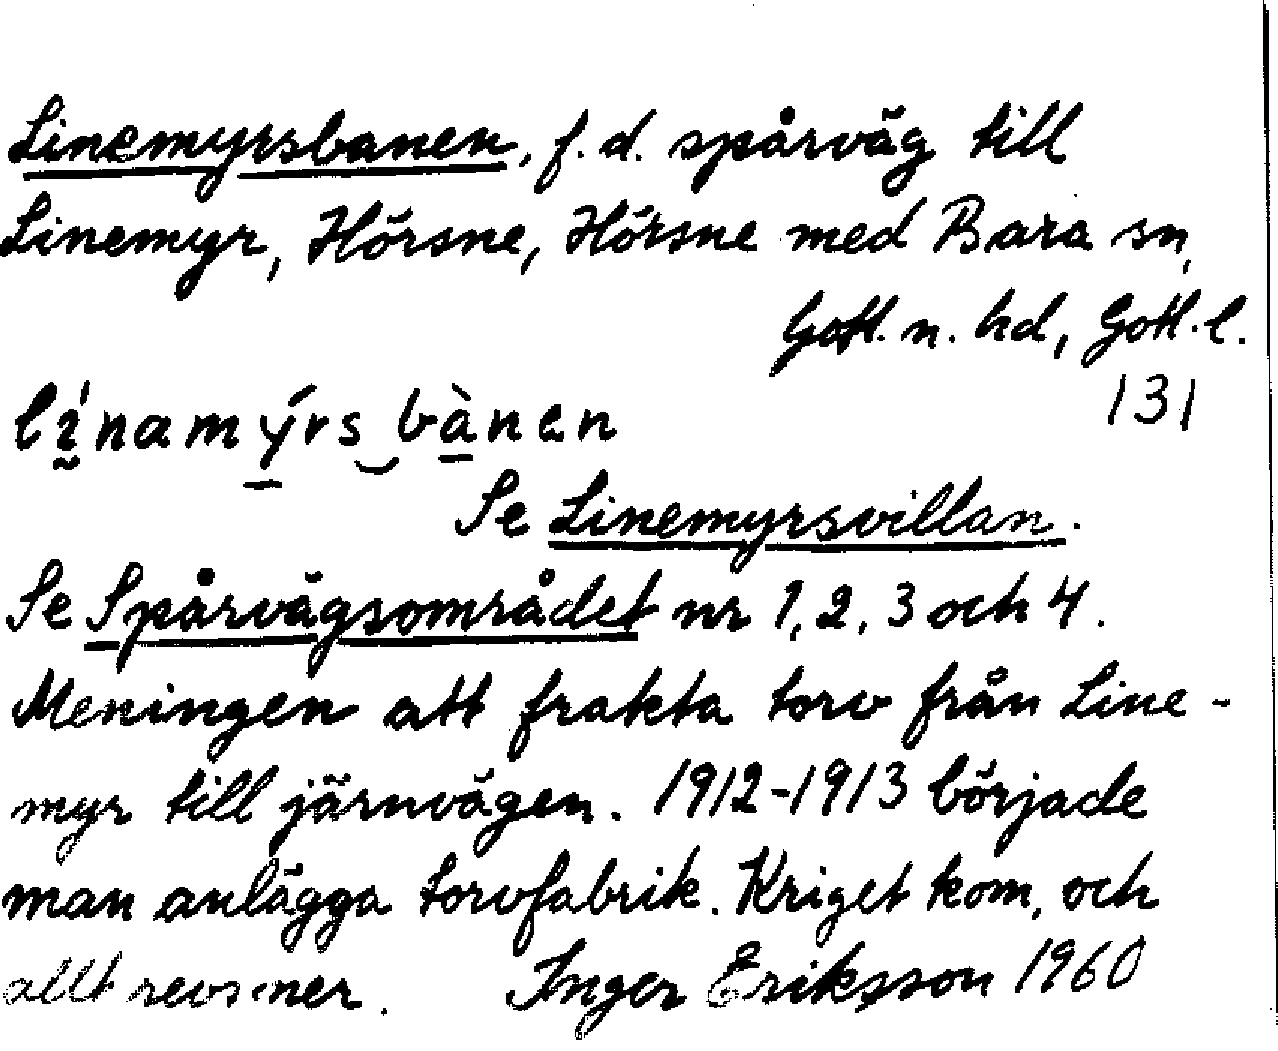 Linemyrsbanen, f.d. spårväg till
Linemyr, Hörsne, Hörsne med Bara sn,
Gotl. n. hd, Gotl. l.
131
lḭ́namýrs‿bànen
Se Linemyrsvillan.
Se Spårvägsområdet nr 1, 2, 3 och 4.
Meningen att frakta torv från Line-
myr till järnvägen. 1912-1913 började
man anlägga torvfabrik. Kriget kom, och
allt revs ner. Inger Eriksson 1960